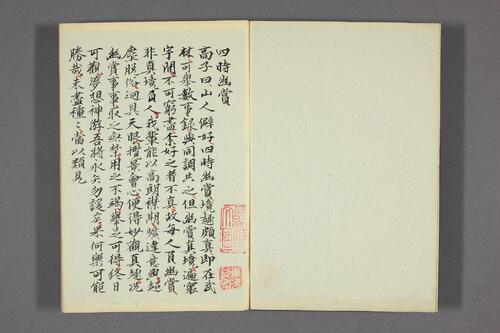 四時幽賞
高子曰山人癖好四時幽賞境趣頗真即在武
林可舉數事錄與同調共之但幽賞真境遍寰
宇間不可窮盡奈好之者不真故每人負幽賞
非真境負人我輩能以高朗襟期曠達意興超
塵脫俗迥具天眼攬景會心便得妙觀真趣況
幽賞事事取之無禁用之不竭舉足可得終日
可觀夢想神游吾將永矢勿諼矣果何樂可能
勝哉未盡種種當以類見